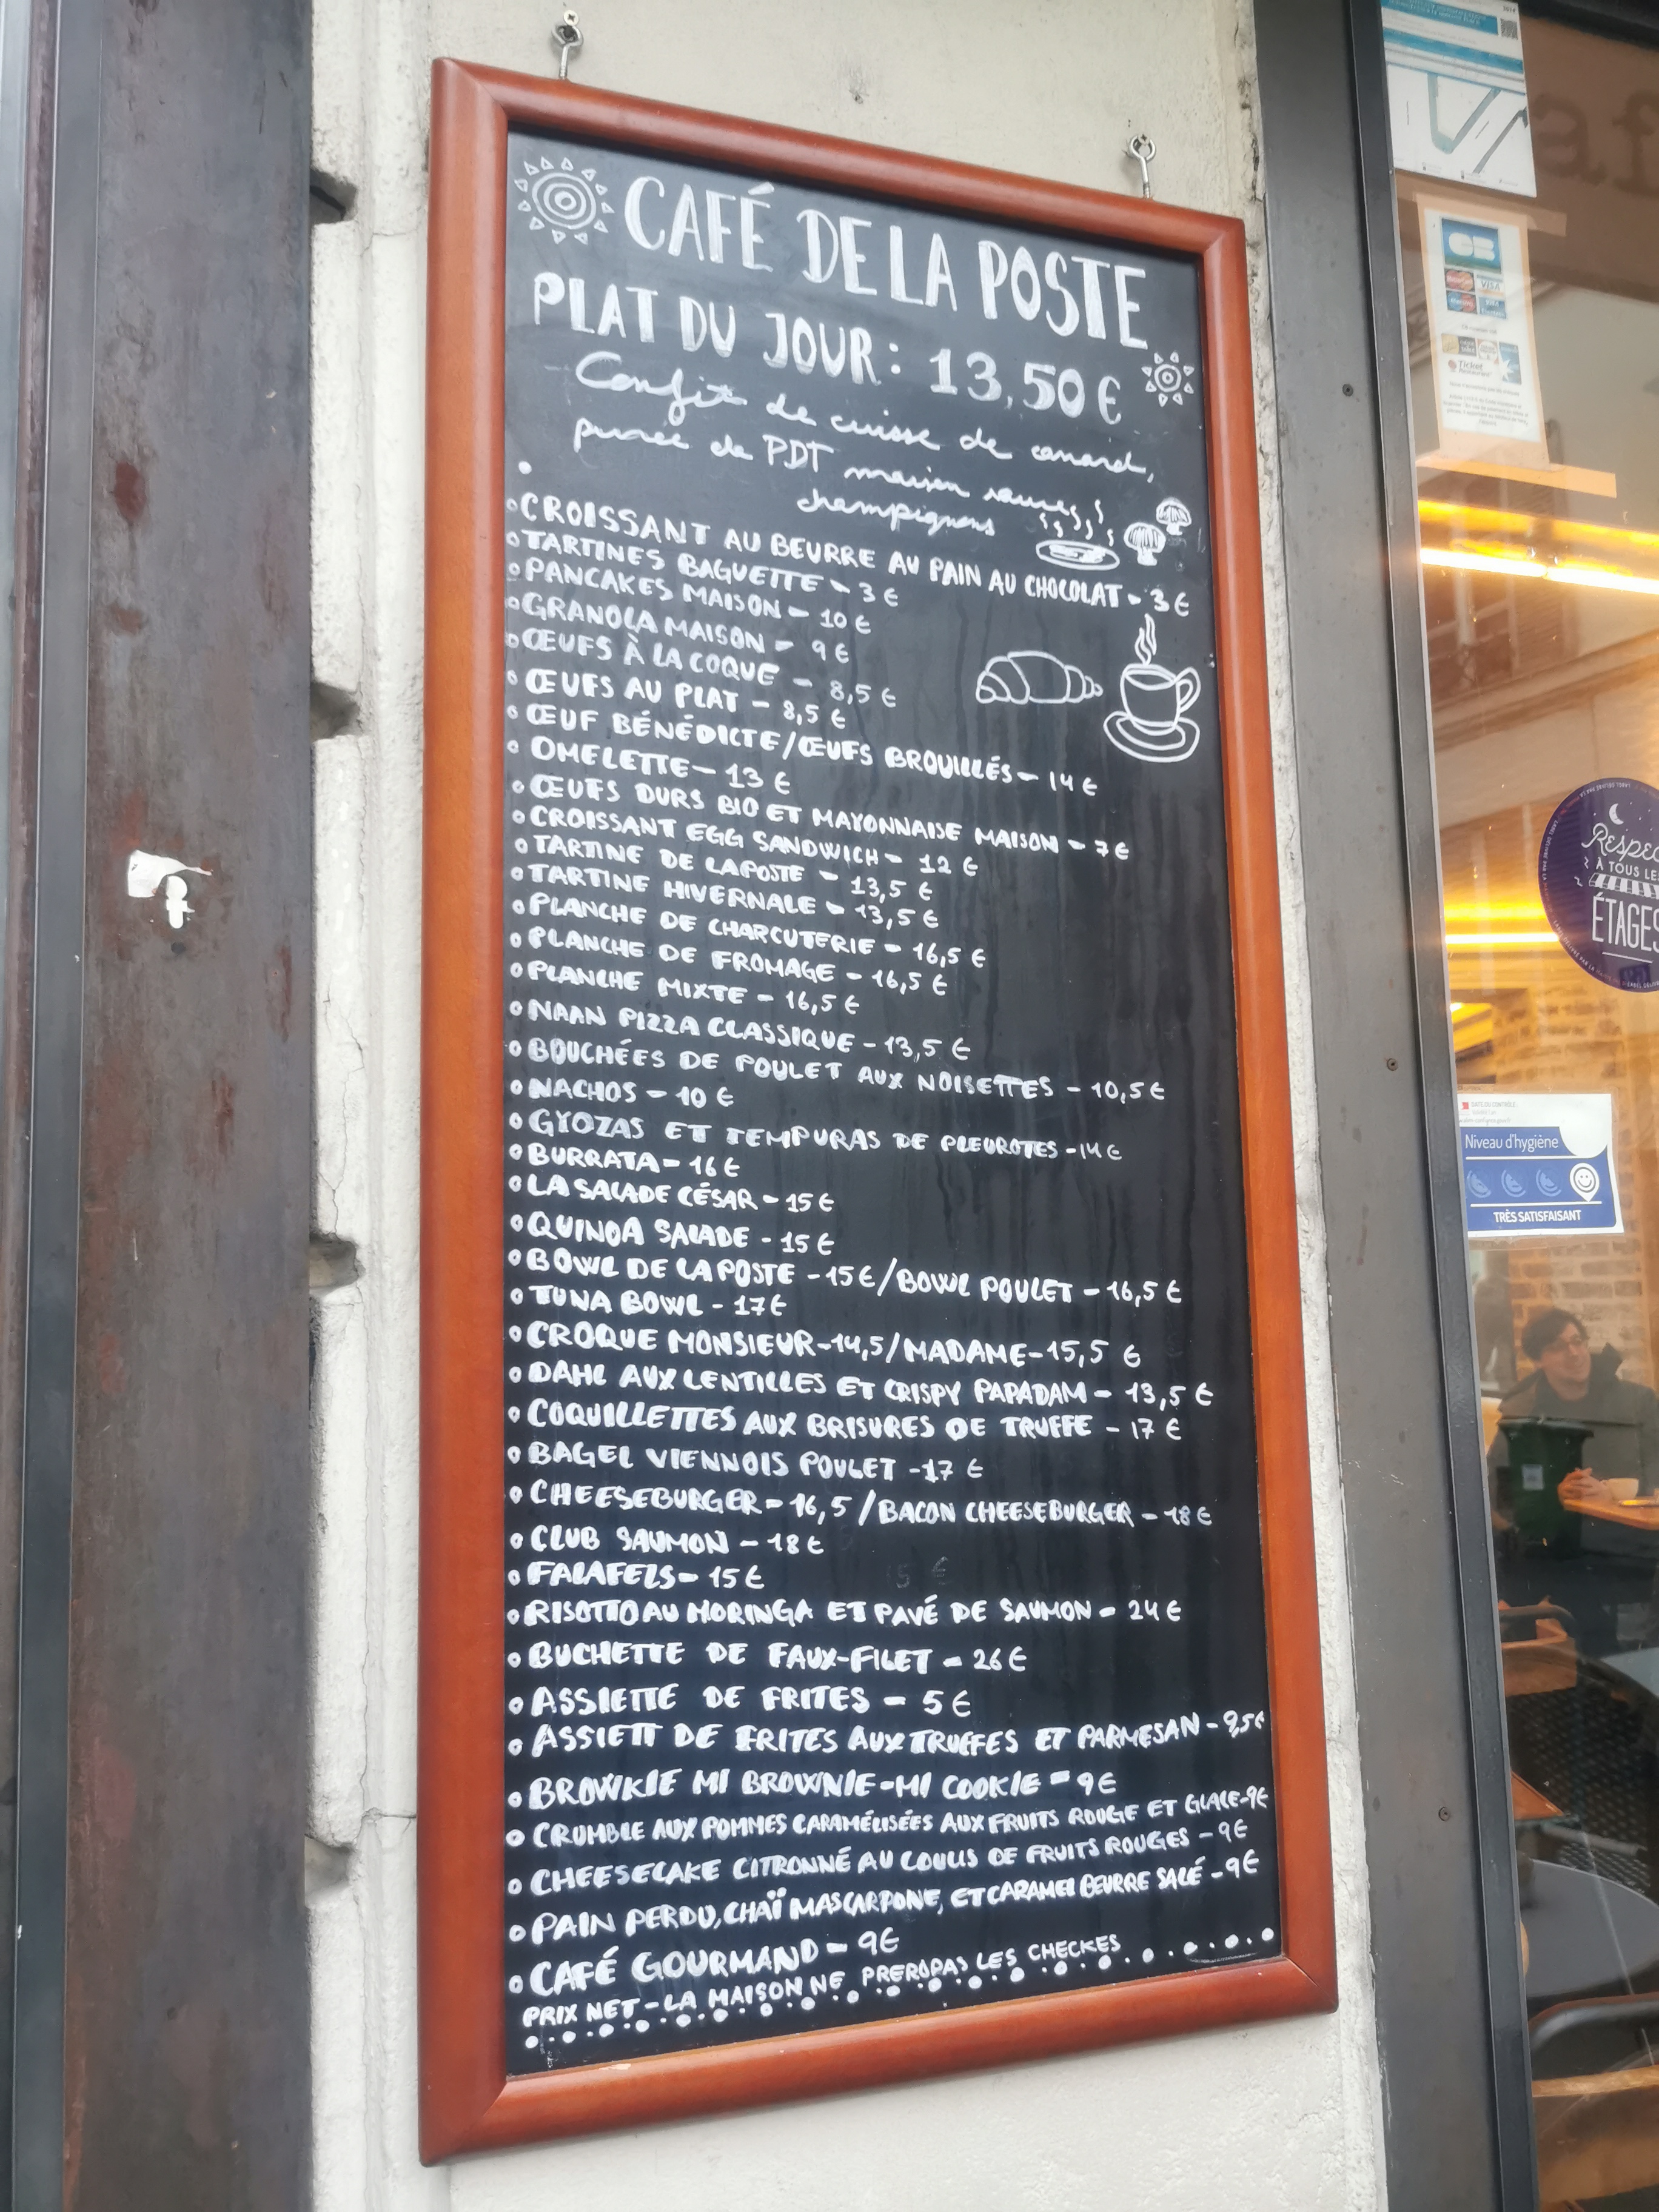 CAFÉ DE LA POSTE
PLAT DU JOUR : 13,50 €
Confit de cuisse de canard,
purée de PDT maison sauce
champignons
CROISSANT AU BEURRE AU PAIN AU CHOCOLAT - 3 €
TARTINES BAGUETTE - 3 €
PANCAKES MAISON - 10 €
GRANOLA MAISON - 9 €
ŒUFS À LA COQUE - 8,5 €
ŒUFS AU PLAT - 8,5 €
ŒUF BÉNÉDICTE/ŒUFS BROUILLÉS - 14 €
OMELETTE - 13 €
ŒUFS DURS BIO ET MAYONNAISE MAISON - 7 €
CROISSANT EGG SANDWICH - 12 €
TARTINE DE LAPOSTE - 13,5 €
TARTINE HIVERNALE - 13,5 €
PLANCHE DE CHARCUTERIE - 16,5 €
PLANCHE DE FROMAGE - 16,5 €
PLANCHE MIXTE - 16,5 €
NAAN PIZZA CLASSIQUE - 13,5 €
BOUCHÉES DE POULET AUX NOISETTES - 10,5 €
NACHOS - 10 €
GYOZAS ET TEMPURAS DE PLEUROTES - 14 €
BURRATA - 16 €
LA SALADE CÉSAR - 15 €
QUINOA SALADE - 15 €
BOWL DE LA POSTE - 15 €/BOWL POULET - 16,5 €
TUNA BOWL - 17 €
CROQUE MONSIEUR - 14,5/MADAME - 15,5 €
DAHL AUX LENTILLES ET CRISPY PAPADAM - 13,5 €
COQUILLETTES AUX BRISURES DE TRUFFE - 17 €
BAGEL VIENNOIS POULET - 17 €
CHEESEBURGER - 16,5 /BACON CHEESEBURGER - 18 €
CLUB SAUMON - 18 €
FALAFELS - 15 €
RISOTTO AU MORINGA ET PAVÉ DE SAUMON - 24 €
BUCHETTE DE FAUX-FILET - 26 €
ASSIETTE DE FRITES - 5 €
ASSIETT DE FRITES AUX TRUFFES ET PARMESAN - 9,5 €
BROWKIE MI BROWNIE-MI COOKIE - 9 €
CRUMBLE AUX POMMES CARAMÉLISÉES AUX FRUITS ROUGE ET GLACE - 9 €
CHEESECAKE CITRONNÉ AU COULIS DE FRUITS ROUGES - 9 €
PAIN PERDU, CHAÏ MASCARPONE, ET CARAMEL BEURRE SALÉ - 9 €
CAFÉ GOURMAND - 9 €
PRIX NET - LA MAISON NE PREND PAS LES CHECKES
CB
VISA
Ticket
Restaurant
À TOUS LES
ÉTAGES
Niveau d'hygiène
TRÈS SATISFAISANT